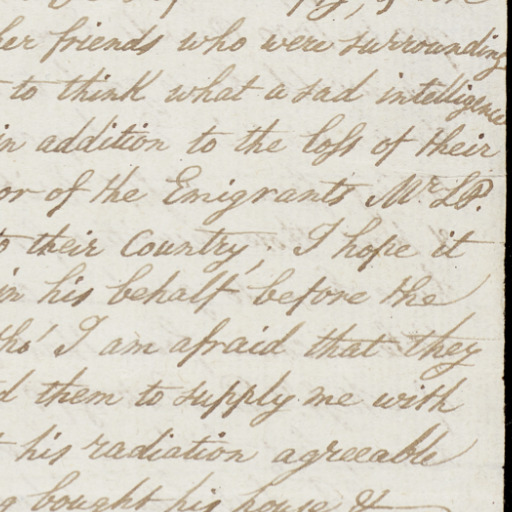 her friends who were surrounding
to think what a sad intelligence
in addition to the loss of their
or of the Emigrants Mr. L.P.
to their Country, I hope it
in his behalf before the
tho' I am afraid that they
d them to supply me with
his radiation agreeable
bought his house &